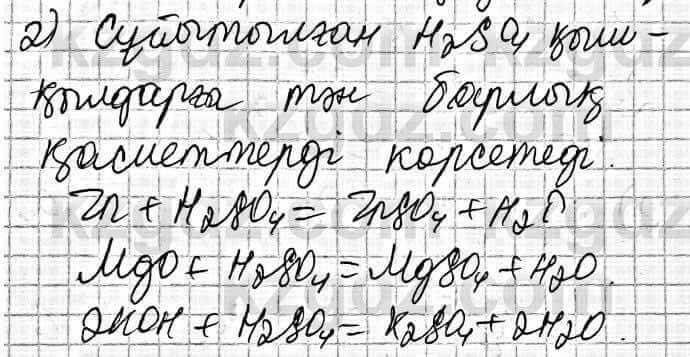 2) Сұйытылған H₂SO₄ қыш-
қылдарға тән барлық
қасиеттерді көрсетеді.
Zn + H₂SO₄ = ZnSO₄ + H₂↑
MgO + H₂SO₄ = MgSO₄ + H₂O.
2KOH + H₂SO₄ = K₂SO₄ + 2H₂O.